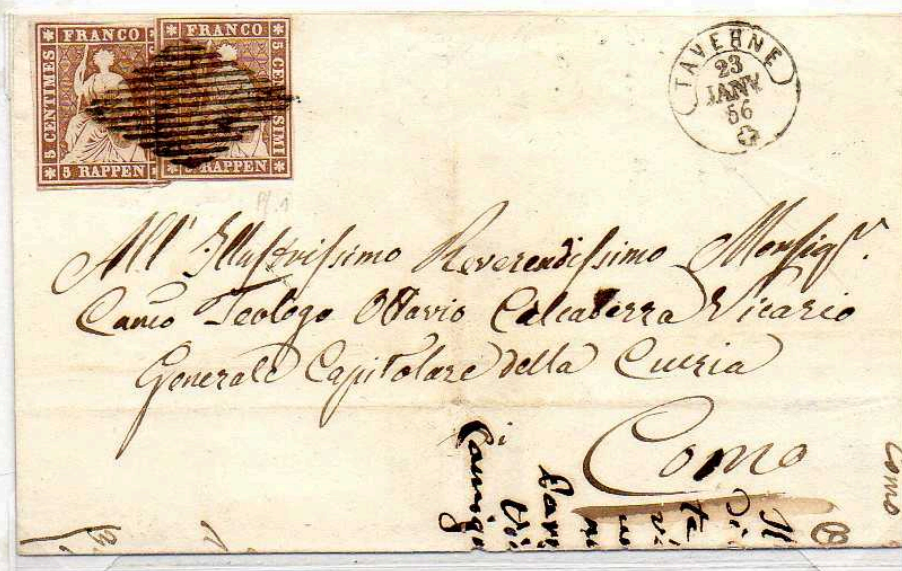 FRANCO
5 CENTIMES
5 RAPPEN
FRANCO
5 CENTESIMI
RAPPEN
TAVERNE
23
JANV
56
All' Illustrissimo Reverendissimo Monsigr.
Canco Teologo Ottavio Calcaterra Vicario
Generale Capitolare della Curia
di
Como
Como
Il
Di